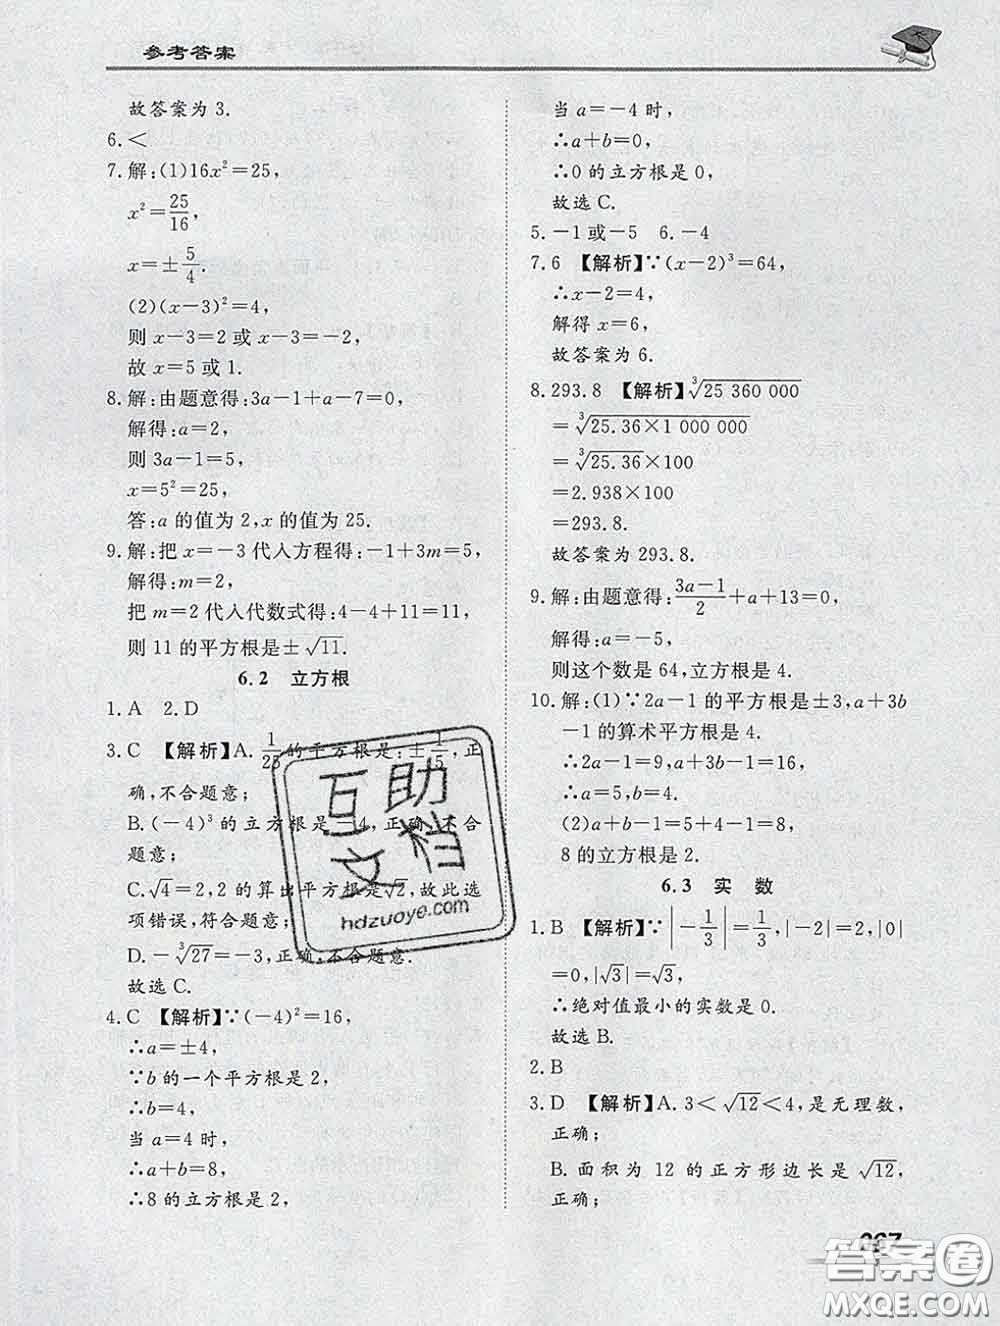 参考答案
故答案为 3.
6.＜
7.解:(1)16x²=25,
x²=25/16,
x=±5/4.
(2)(x-3)²=4,
则 x-3=2 或 x-3=-2,
故 x=5 或 1.
8.解:由题意得:3a-1+a-7=0,
解得:a=2,
则 3a-1=5,
x=5²=25,
答:a 的值为 2,x 的值为 25.
9.解:把 x=-3 代入方程得:-1+3m=5,
解得:m=2,
把 m=2 代入代数式得:4-4+11=11,
则 11 的平方根是±√11.
6.2 立方根
1.A 2.D
3.C 【解析】A.1/25的平方根是:±1/5,正
确,不合题意;
B.(-4)³ 的立方根是-4,正确,不合
题意;
C.√4=2,2 的算出平方根是√2,故此选
项错误,符合题意;
D.-∛27=-3,正确,不合题意.
故选 C.
4.C 【解析】∵(-4)²=16,
∴a=±4,
∵b 的一个平方根是 2,
∴b=4,
当 a=4 时,
∴a+b=8,
∴8 的立方根是 2,
当 a=-4 时,
∴a+b=0,
∴0 的立方根是 0,
故选 C.
5.-1 或-5 6.-4
7.6 【解析】∵(x-2)³=64,
∴x-2=4,
解得 x=6,
故答案为 6.
8.293.8 【解析】∛25 360 000
=∛25.36×1 000 000
=∛25.36×100
=2.938×100
=293.8.
故答案为 293.8.
9.解:由题意得:(3a-1)/2+a+13=0,
解得:a=-5,
则这个数是 64,立方根是 4.
10.解:(1)∵2a-1 的平方根是±3,a+3b
-1 的算术平方根是 4.
∴2a-1=9,a+3b-1=16,
∴a=5,b=4.
(2)a+b-1=5+4-1=8,
8 的立方根是 2.
6.3 实 数
1.B 【解析】∵|-1/3|=1/3,|-2|=2,|0|
=0,|√3|=√3,
∴绝对值最小的实数是 0.
故选 B.
2.B
3.D 【解析】A.3＜√12＜4,是无理数,
正确;
B.面积为 12 的正方形边长是√12,
正确;
互助
文档
hdzuoye.com
答案圈
MXQE.COM